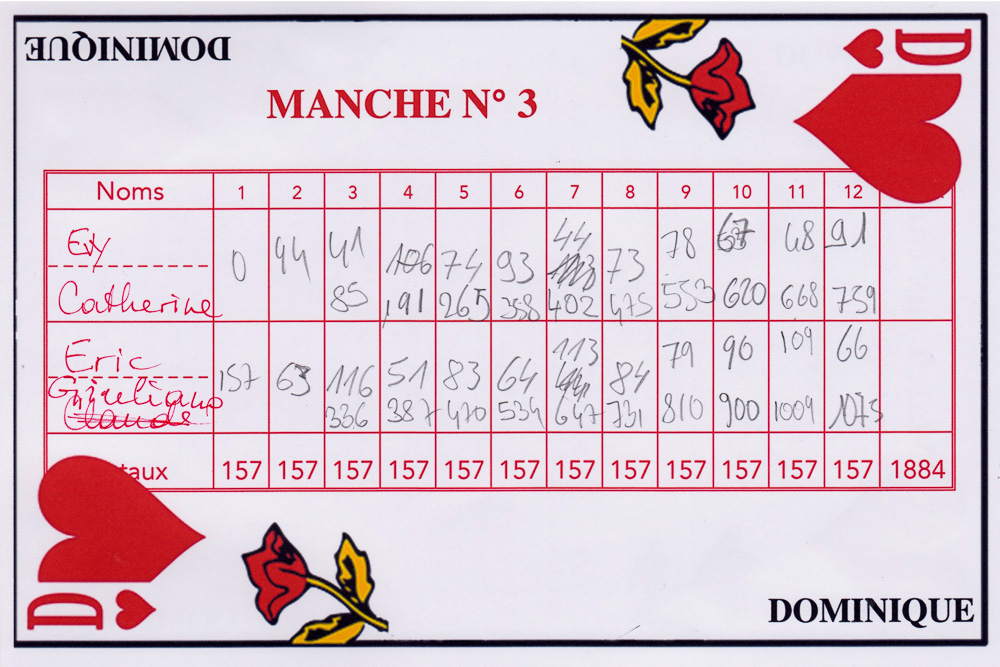 DOMINIQUE
D
MANCHE N° 3
Noms 1 2 3 4 5 6 7 8 9 10 11 12
Evy 0 44 41 106 74 93 44 73 78 67 48 91
Catherine 85 191 265 358 402 475 553 620 668 759
Eric 157 63 116 51 83 64 113 84 79 90 109 66
Giuliano 336 387 470 534 647 731 810 900 1009 1075
Claude
taux 157 157 157 157 157 157 157 157 157 157 157 157 1884
D
DOMINIQUE